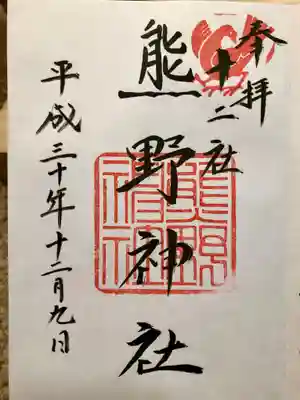 奉拝
十二社
熊野神社
平成三十年十二月九日
熊野神社